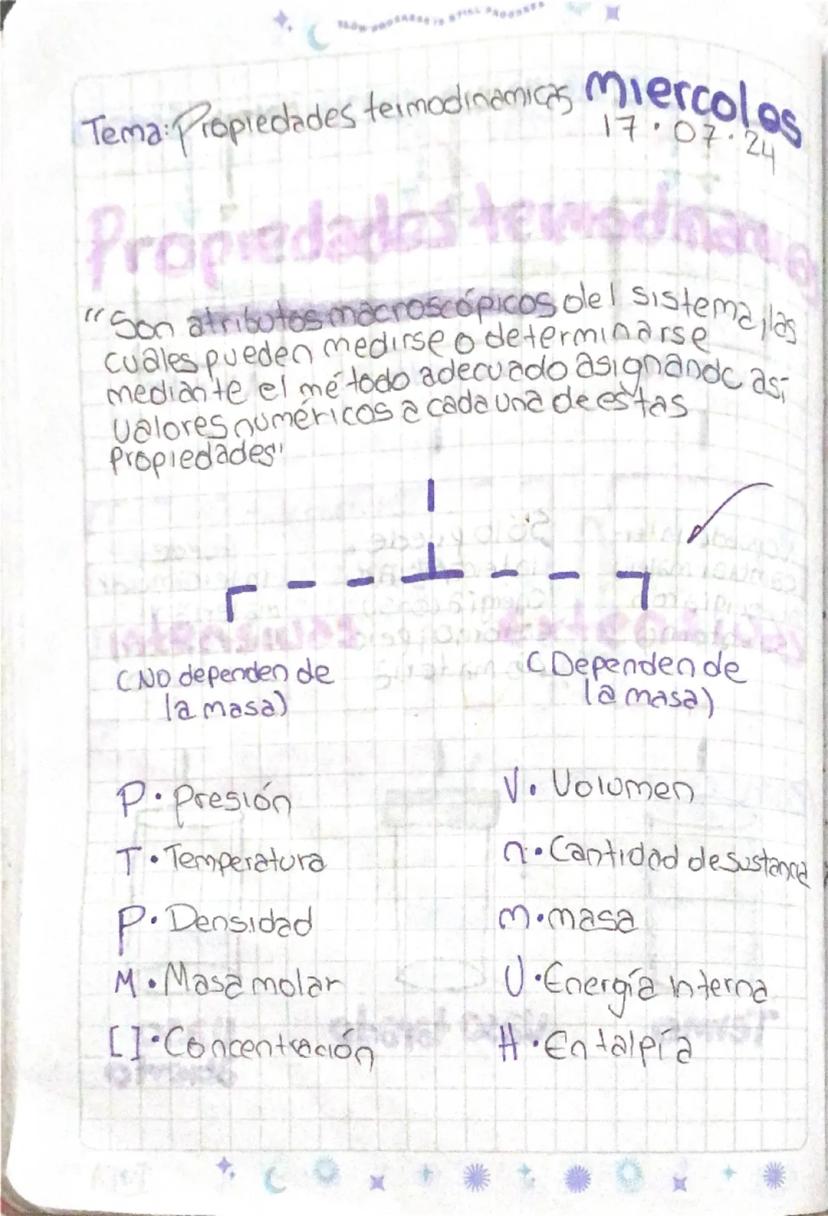 SLOW PROGRESS IS STILL PROGRESS
Tema: Propiedades termodinamicas Miercoles
17.07.24
Propiedades termodinami
"Son atributos macroscópicos del sistema, las
cuales pueden medirse o determinarse
mediante el método adecuado asignando así
valores numéricos a cada una de estas
propiedades"
(No dependen de
la masa)
(Dependen de
la masa)
P. Presión
T. Temperatura
P. Densidad
M. Masa molar
[]. Concentración
V. Volumen
n. Cantidad de sustancia
m. masa
U. Energía interna
H. Entalpía